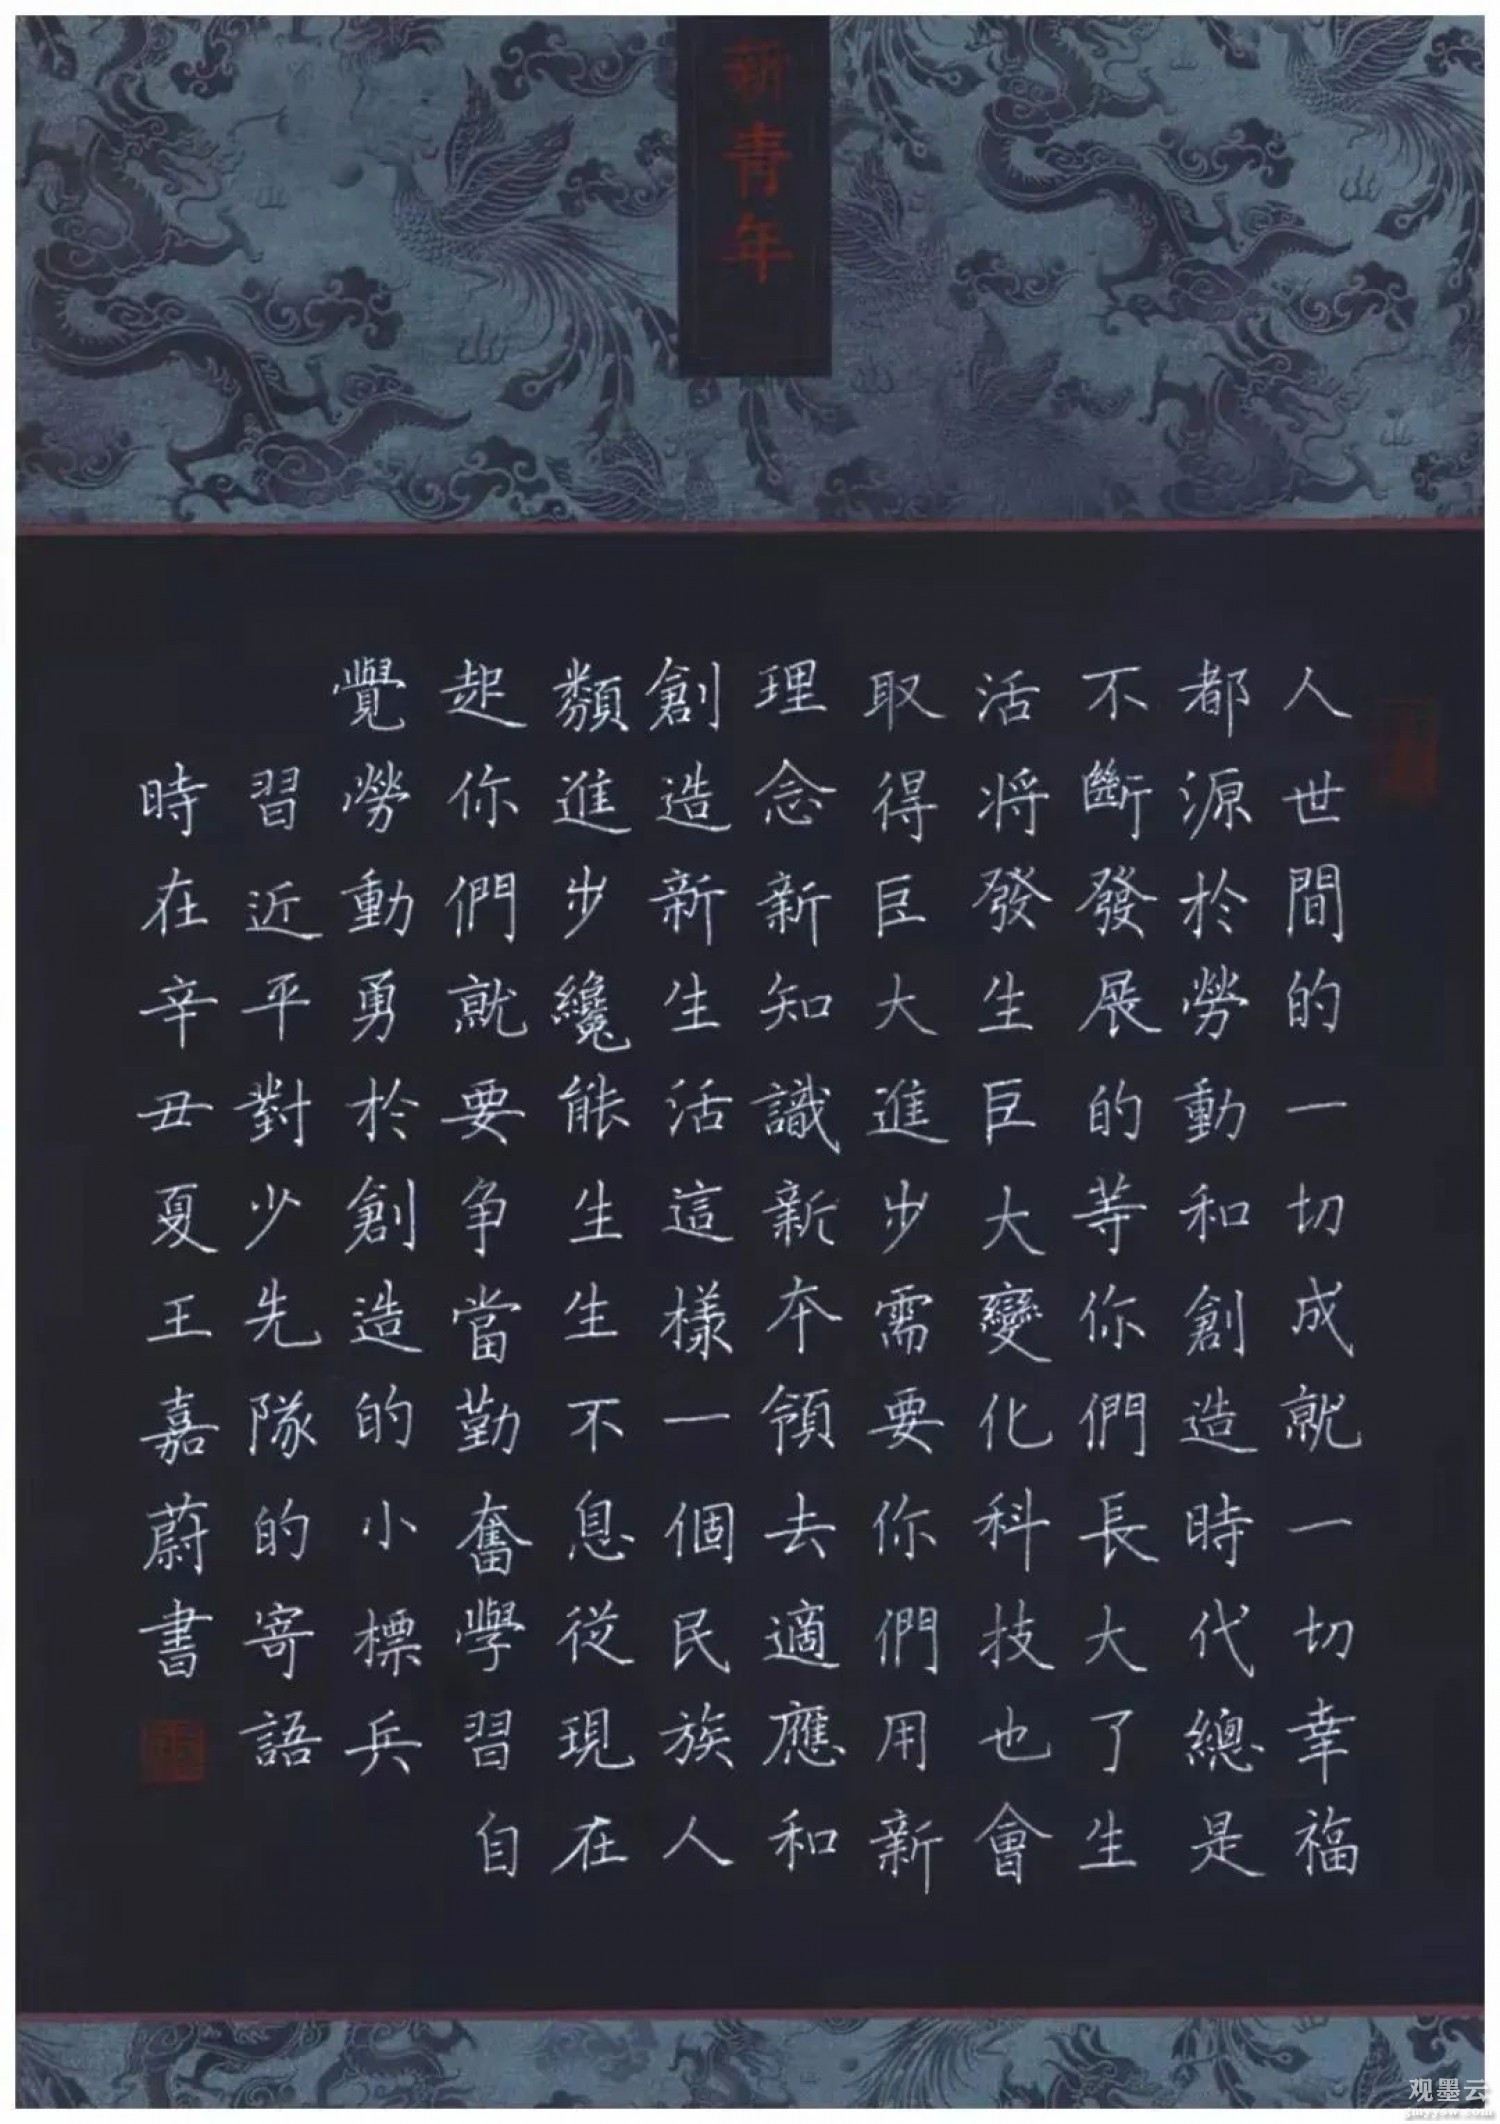 新青年
人世間的一切成就一切幸福
都源於勞動和創造時代總是
不斷發展的等你們長大了生
活將發生巨大變化科技也會
取得巨大進步需要你們用新
理念新知識新本領去適應和
創造新生活這樣一個民族人
類進步纔能生生不息從現在
起你們就要争當勤奮學習自
覺勞動勇於創造的小標兵
習近平對少先隊的寄語
時在辛丑夏王嘉蔚書
观墨云